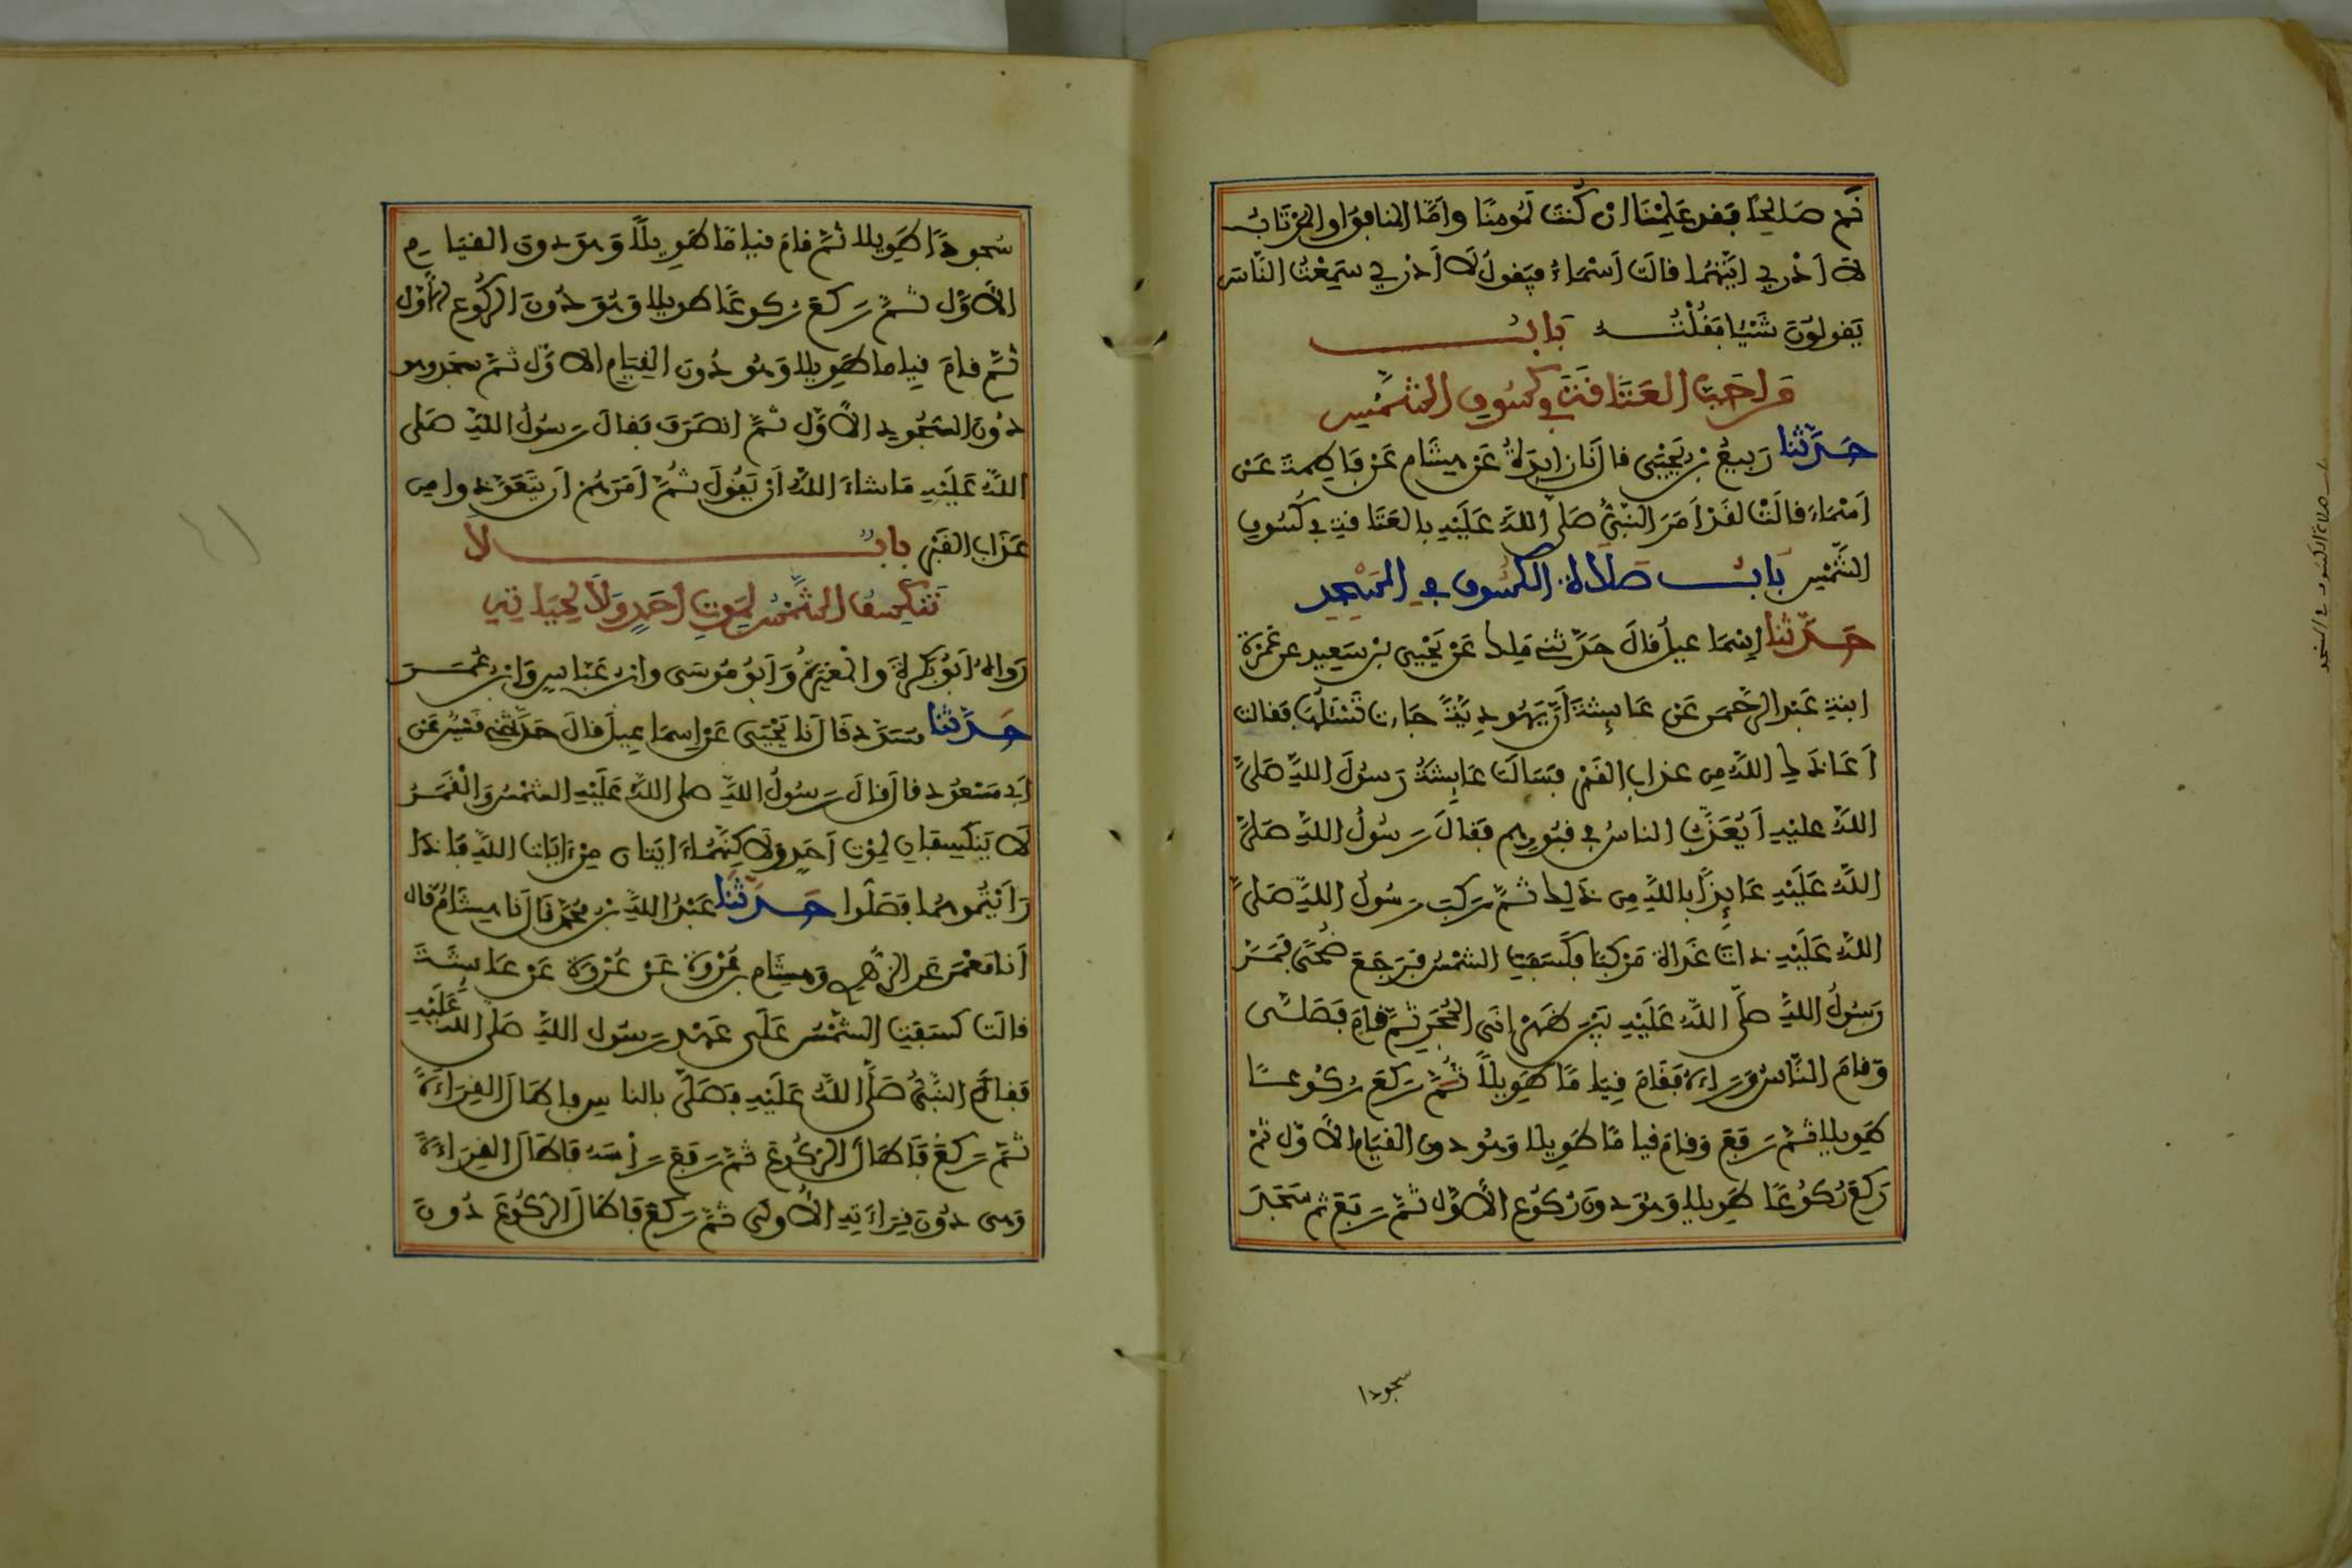 نَم صَالِحًا فَقد عَلِمْنَا ان كُنتَ لَمُومنًا وأمَّا المنافقُ او المُرْتَابُ
لَا أدْرِي ايَّتهُما قالت أسْمَاءُ فيَقولُ لَا أدْرِي سَمِعْتُ النَّاسَ
يَقولُونَ شَيْئا فَقُلْتُه بَابُ
مَن احَبَّ العَتَاقَةَ فِي كُسُوفِ الشَّمْسِ
حَدَّثنا رَبيعُ بْن يَحْيَى قال نَا زايِدَةُ عَن هِشَام عَن فَاطِمةَ عَن
اسْمَاءَ قالَتْ لقَدْ أَمَرَ النَّبِيُّ صَلى اللهُ عَلَيْهِ بالعَتَاقةِ في كُسُوفِ
الشَّمْسِ بَابُ صَلَاةِ الكُسُوفِ فِي المَسْجِدِ
حَدَّثنا إسْمَاعيلُ قالَ حَدَّثَنِي مَلك عَن يَحْيَى بن سَعِيدٍ عن عَمْرَةَ
ابنةِ عَبْدِ الرَّحْمَن عَن عَايِشَةَ أنَّ يَهُودِيَّةً جَاءت تَسْئَلُهَا فقَالت
أعَاذَكِ اللهُ مِن عذاب القَبْرِ فسَألَتْ عَايِشَةُ رَسُولَ اللهِ صَلى
اللهُ عليْهِ أيُعَذَّبُ الناسُ في قبُورِهِم فقَالَ رَسُولُ اللهِ صَلى
اللهُ عَلَيْهِ عَايِذًا باللهِ مِن ذَلِك ثُمَّ رَكِبَ رَسُولُ اللهِ صَلى
اللهُ عَلَيْهِ ذاتَ غَدَاة مَرْكبًا فكَسَفَتِ الشمْسُ فَرَجَعَ ضُحًى فَمَرَّ
رَسُولُ اللهِ صلى اللهُ عَلَيْهِ بَيْنَ ظَهْرَانَي الحُجَرِ ثُمَّ قَامَ فَصَلَّى
وَقامَ النَّاسُ وَرَاءَهُ فقَامَ قِيَامًا طَوِيلًا ثُمَّ رَكَعَ رُكُوعًا
طَوِيلا ثُمَّ رَفَعَ وَقامَ قيامًا طَوِيلا وَهُو دون القيَام الأوَّل ثمَّ
رَكعَ رُكُوعًا طَوِيلا وَهُوَ دونَ رُكُوع الأوَّل ثُمَّ رَفَعَ ثم سَجَدَ
سجودا
باب صلاة الكسوف في المسجد
سُجودًا طَوِيلا ثُمَّ قامَ قيامًا طَوِيلًا وَهُوَ دونَ القيَامِ
الأوَّل ثُمَّ رَكعَ رُكوعًا طَويلا وَهُوَ دُونَ الرُّكُوع الأوَّل
ثُمَّ قامَ قيِاما طَوِيلا وَهُو دُونَ القِيَامِ الاوَّل ثمَّ سجَد وهو
دُونَ السُّجُودِ الأوَّل ثُمَّ انصَرَفَ فَقالَ رَسُولُ اللهِ صَلى
اللهُ عَلَيْهِ مَا شاءَ اللهُ أن يَقُولَ ثُمَّ أمَرَهُم أن يَتَعَوَّذوا مِن
عَذَاب القَبْرِ بابٌ لا
تَنكَسِفُ الشَّمْسُ لِمَوتِ أحَدٍ وَلَا لِحَيَاتِهِ
رَوَاهُ أبُو بَكرَةَ وَالمُغِيرَةُ وَأبُو مُوسَى وابن عَبَّاسٍ وَابن عُمَرَ
حَدَّثنا مسَدَّد قَال نَا يَحْيَى عَن إسمَاعِيلَ قالَ حَدَّثَنِي قَيْسٌ عَن
أبي مَسْعُود قال قالَ رَسُولُ اللهِ صلى اللهُ عَلَيْهِ الشمْسُ وَالْقَمَرُ
لَا يَنكَسِفَانِ لِمَوْتِ أحَدٍ وَلَاكِنَّهُمَا ءَايتَانِ مِنْ ءَايَاتِ اللهِ فَإذَا
رَأيْتُمُوهُما فَصَلُّوا حَدَّثنا عَبْدُ اللهِ بن مُحَمَّد قَال نَا هِشَامٌ قال
أنا مَعْمَرٌ عَن الزُّهْرِي وَهِشَام بن عُرْوَةَ عَنْ عُرْوَةَ عَن عَايِشَةَ
قالَت كَسَفَتِ الشَّمْسُ عَلَى عَهْدِ رَسُول اللهِ صَلى اللهُ عَلَيْهِ
فَقامَ النَّبِيُّ صَلى اللهُ عَلَيْهِ فَصَلَّى بالناسِ فأطَالَ القِرَاءَةَ
ثُمَّ رَكعَ فَأطَالَ الرُّكُوعَ ثُمَّ رَفعَ رَأسَهُ فَأطَالَ القِرَاءَةَ
وَهى دُونَ قِرَاءَتِهِ الأولَى ثُمَّ رَكعَ فَأطَالَ الرُّكُوعَ دُونَ